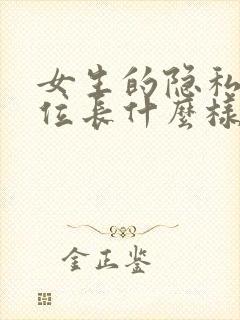 女生的隐私
位长什麼樣
金正鉴